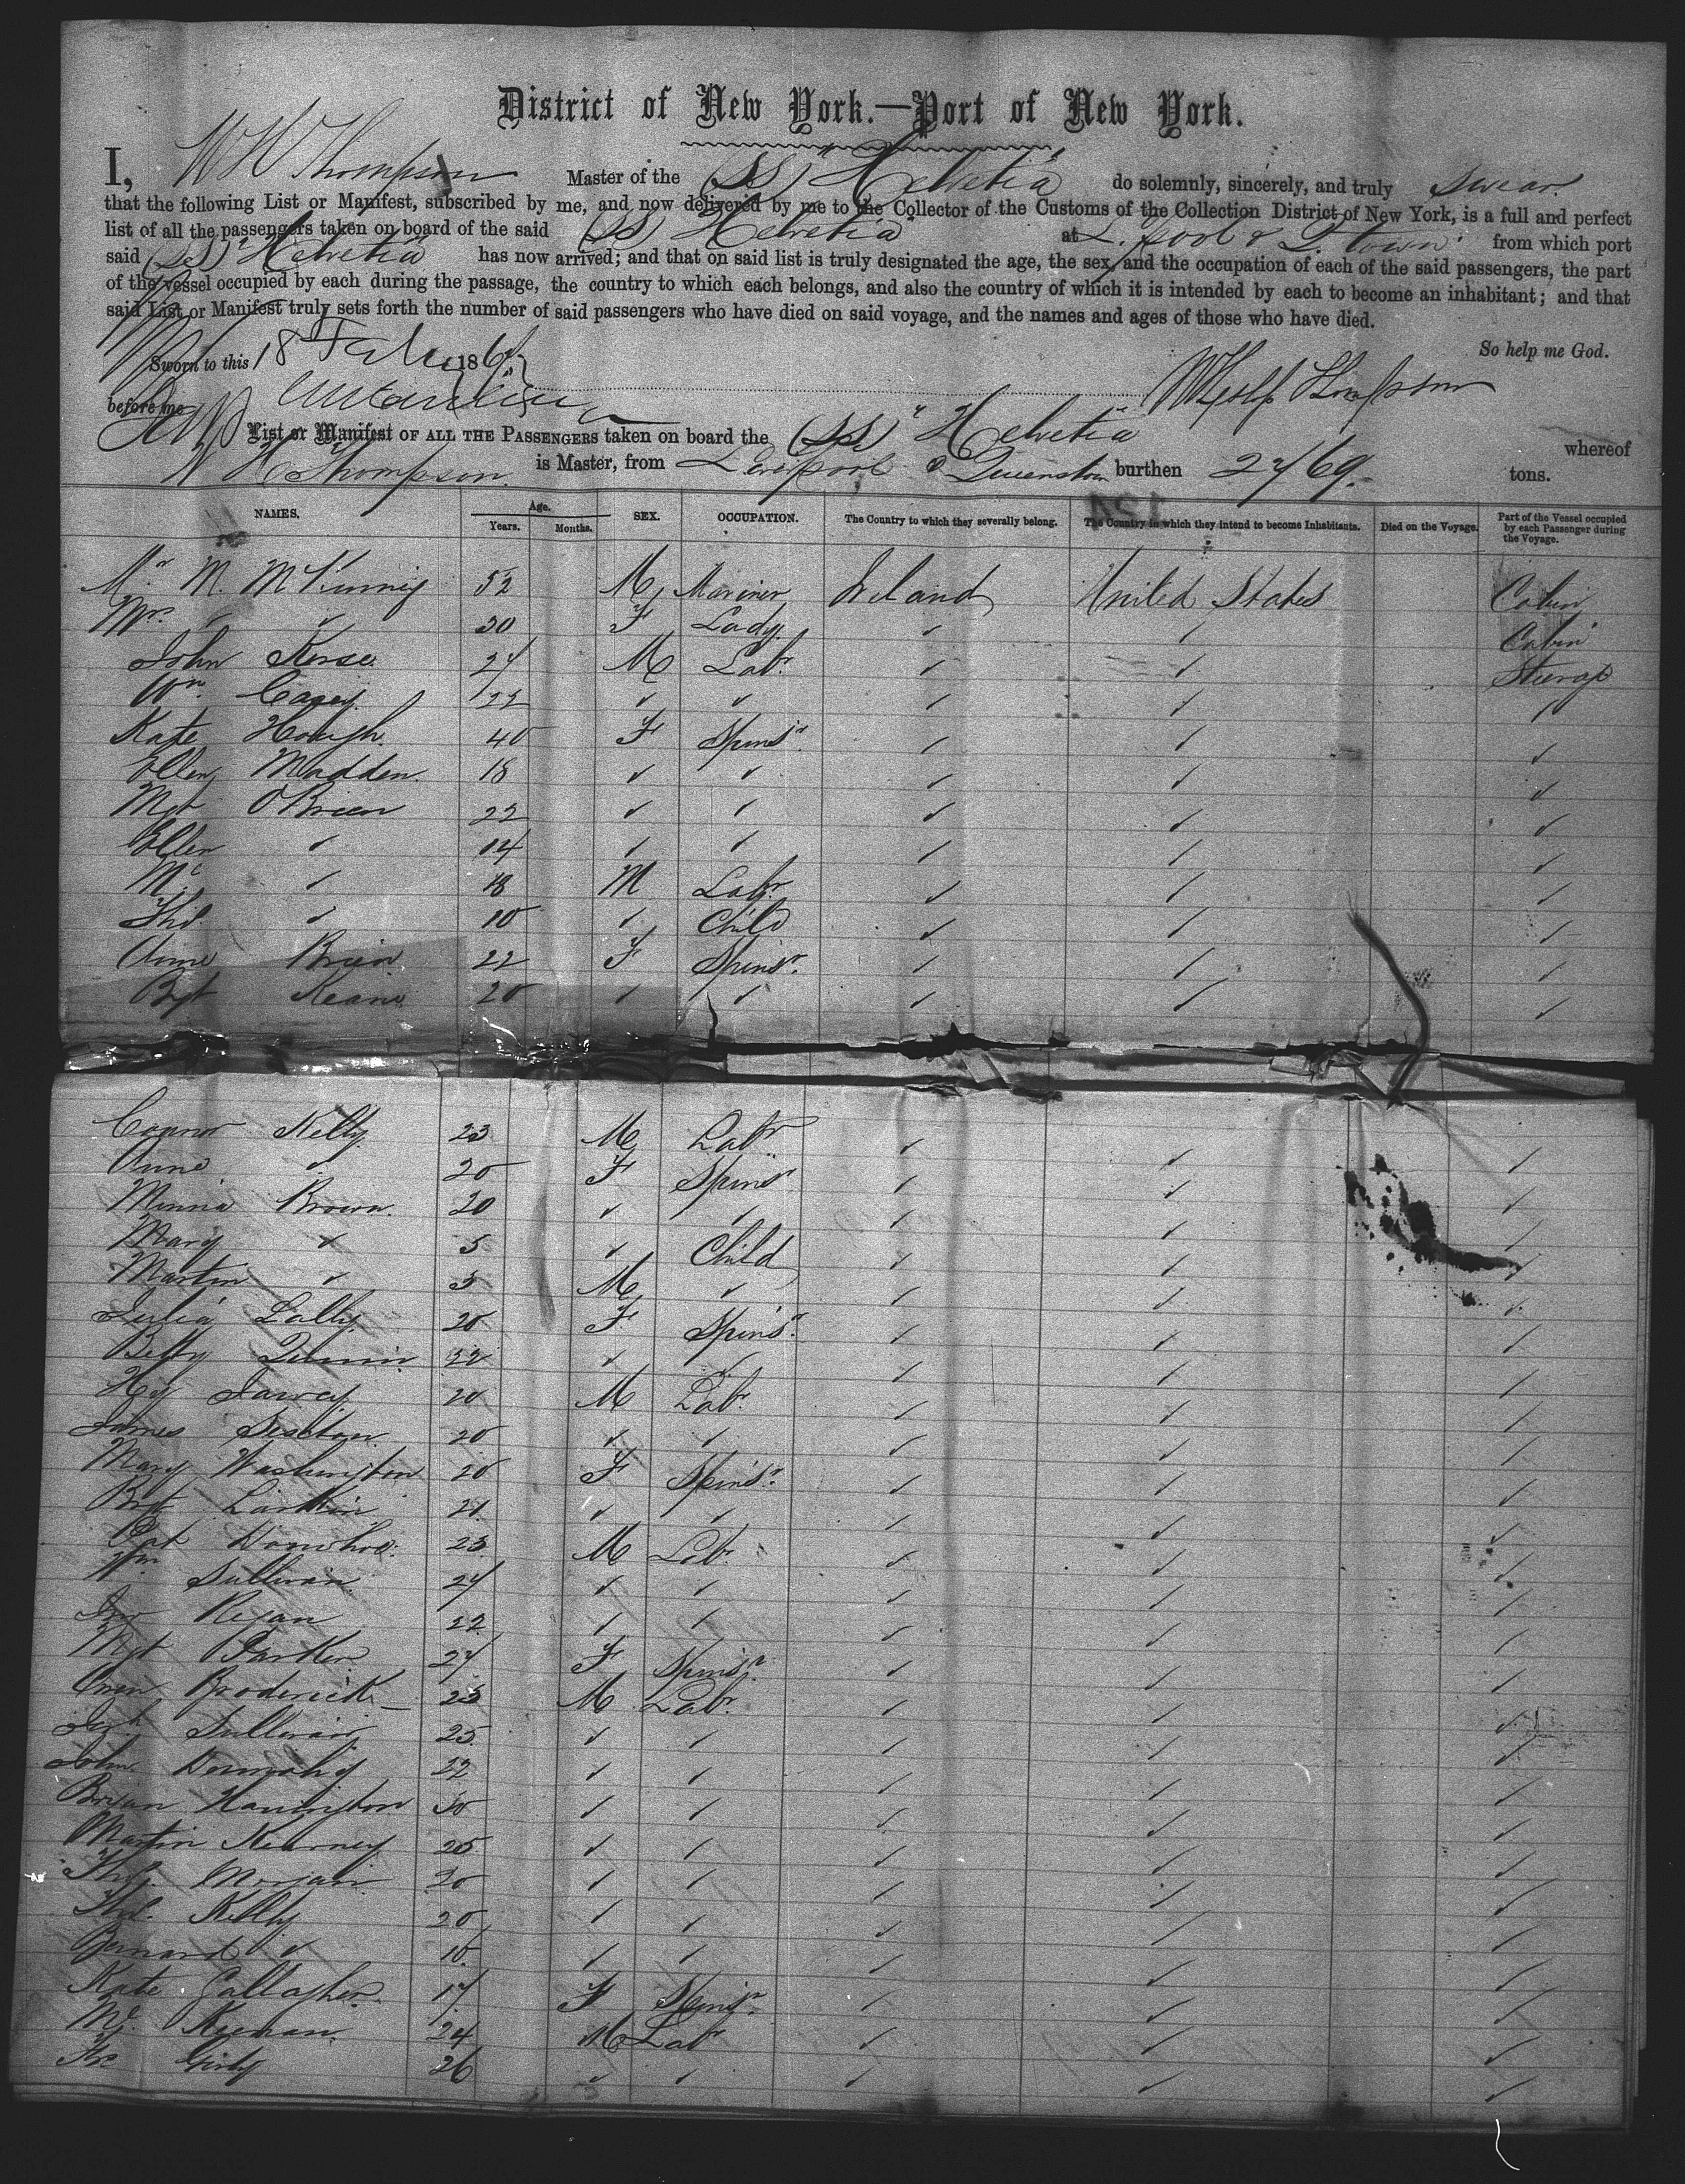 District of New York.—Port of New York.
I, W H Thompson Master of the (SS) "Helvetia" do solemnly, sincerely, and truly Swear
that the following List or Manifest, subscribed by me, and now delivered by me to the Collector of the Customs of the Collection District of New York, is a full and perfect
list of all the passengers taken on board of the said (SS) Helvetia at L.pool & Q.town from which port
said (SS) "Helvetia" has now arrived; and that on said list is truly designated the age, the sex, and the occupation of each of the said passengers, the part
of the vessel occupied by each during the passage, the country to which each belongs, and also the country of which it is intended by each to become an inhabitant; and that
said List or Manifest truly sets forth the number of said passengers who have died on said voyage, and the names and ages of those who have died.
So help me God.
Sworn to this 18 186
before me
List or Manifest OF ALL THE PASSENGERS taken on board the (SS) "Helvetia" whereof
W H Thompson. is Master, from Liverpool & Queenstown burthen 2769. tons.
NAMES. Age. Years. Months. SEX. OCCUPATION. The Country to which they severally belong. The Country in which they intend to become Inhabitants. Died on the Voyage. Part of the Vessel occupied by each Passenger during the Voyage.
Mr M. 52 M Mariner Ireland United States Cabin
Mrs. " " 30 F Lady " " Cabin
John Kerse 27 M Labr " " Steerage
Wm Casey 22 " " " " "
Kate Hough 40 F Spinsr " " "
Ellen Madden 18 " " " " "
Mgt O'Brien 22 " " " " "
Ellen " 14 " " " " "
Mc " 18 M Labr " " "
Thd. " 10 " Child " " "
Anne Brien 22 F Spinsr " " "
Bgt Keane 20 " " " " "
Connor Kelly 23 M Labr " " "
Anne " 20 F Spinsr " " "
Minnia Brown 20 " " " " "
Mary " 5 " Child " " "
Martin " 3 M " " " "
Julia Lally 20 F Spinsr " " "
Betty Quinn 22 " " " " "
Hy 20 M Labr " " "
James Sexton 20 " " " " "
Mary Washington 20 F Spinsr " " "
Bgt Larkin 21 " " " " "
Pat Donohoe 23 M Labr " " "
Wm Sullivan 27 " " " " "
Jno Regan 22 " " " " "
Mgt Parker 27 F Spinsr " " "
Owen Broderick 23 M Labr " " "
Jerh Sullivan 25 " " " " "
John 22 " " " " "
Bryan Harrington 30 " " " " "
Martin Kearney 25 " " " " "
Thos. Morgan 20 " " " " "
Thd. Kelly 20 " " " " "
Bernard " 18 " " " " "
Kate Gallagher 17 F Spinsr " " "
Mc. Keenan 24 M Labr " " "
26 " " " " "